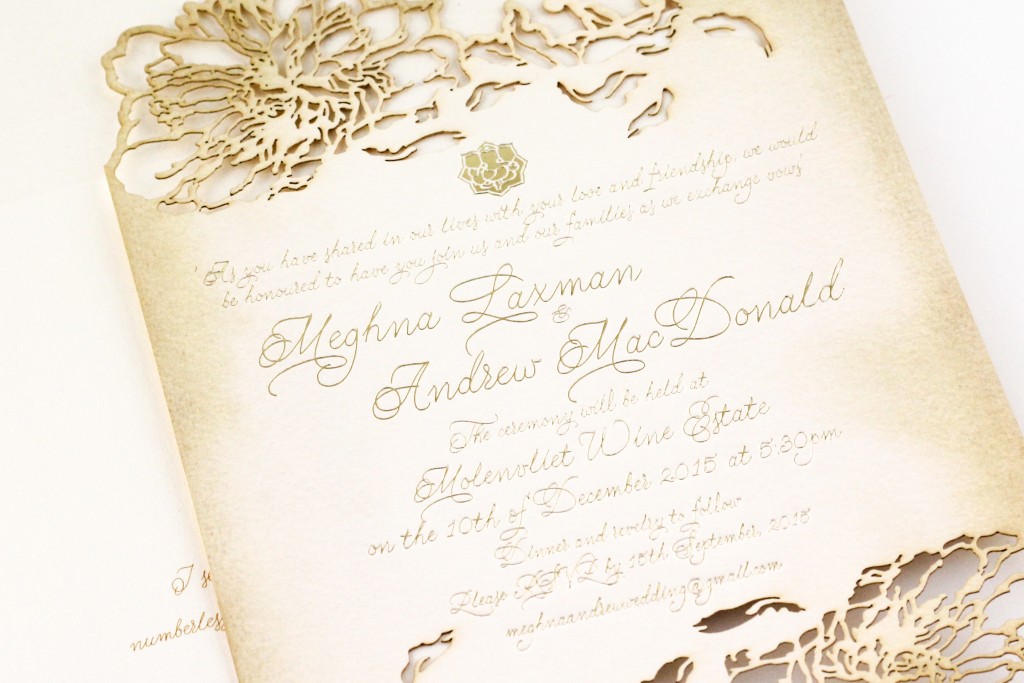 'As you have shared in our lives with your love and friendship, we would
be honoured to have you join us and our families as we exchange vows'
Meghna Laxman
&
Andrew MacDonald
The ceremony will be held at
Molenvliet Wine Estate
on the 10th of December 2015 at 5:30pm
Dinner and revelry to follow
Please RSVP by 15th, September, 2015
meghnaandrewwedding@gmail.com
I
numberles